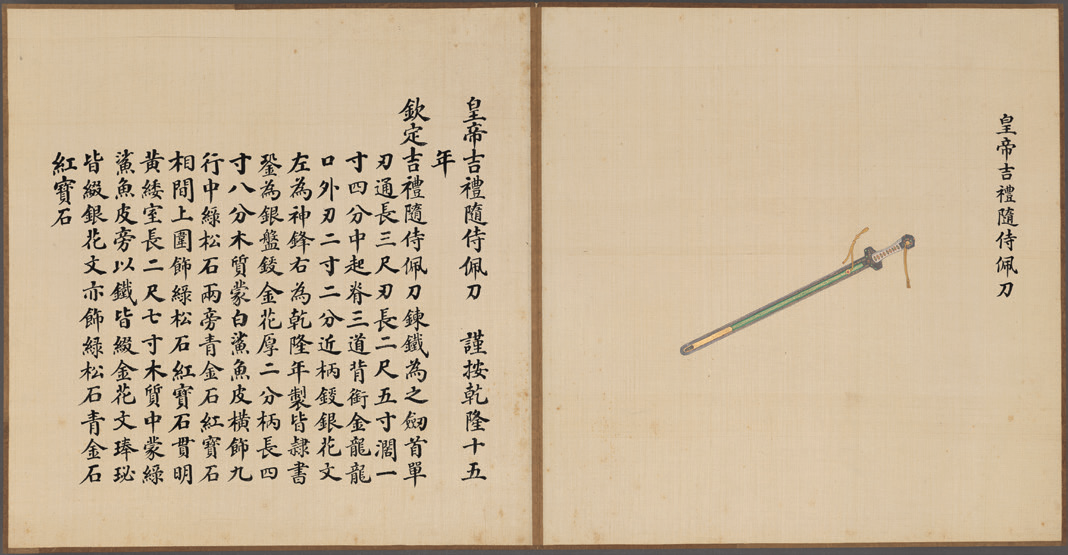 皇帝吉禮隨侍佩刀
皇帝吉禮隨侍佩刀　謹按乾隆十五
年
欽定吉禮隨侍佩刀鍊鐵為之劔首單
刃通長三尺刃長二尺五寸濶一
寸四分中起脊三道背銜金龍龍
口外刃二寸二分近柄鋄銀花文
左為神鋒右為乾隆年製皆隸書
銎為銀盤鋄金花厚二分柄長四
寸八分木質蒙白鯊魚皮橫飾九
行中綠松石兩旁青金石紅寶石
相間上圍飾綠松石紅寶石貫明
黃緌室長二尺七寸木質中蒙綠
鯊魚皮旁以鐵皆綴金花文琫珌
皆綴銀花文亦飾綠松石青金石
紅寶石